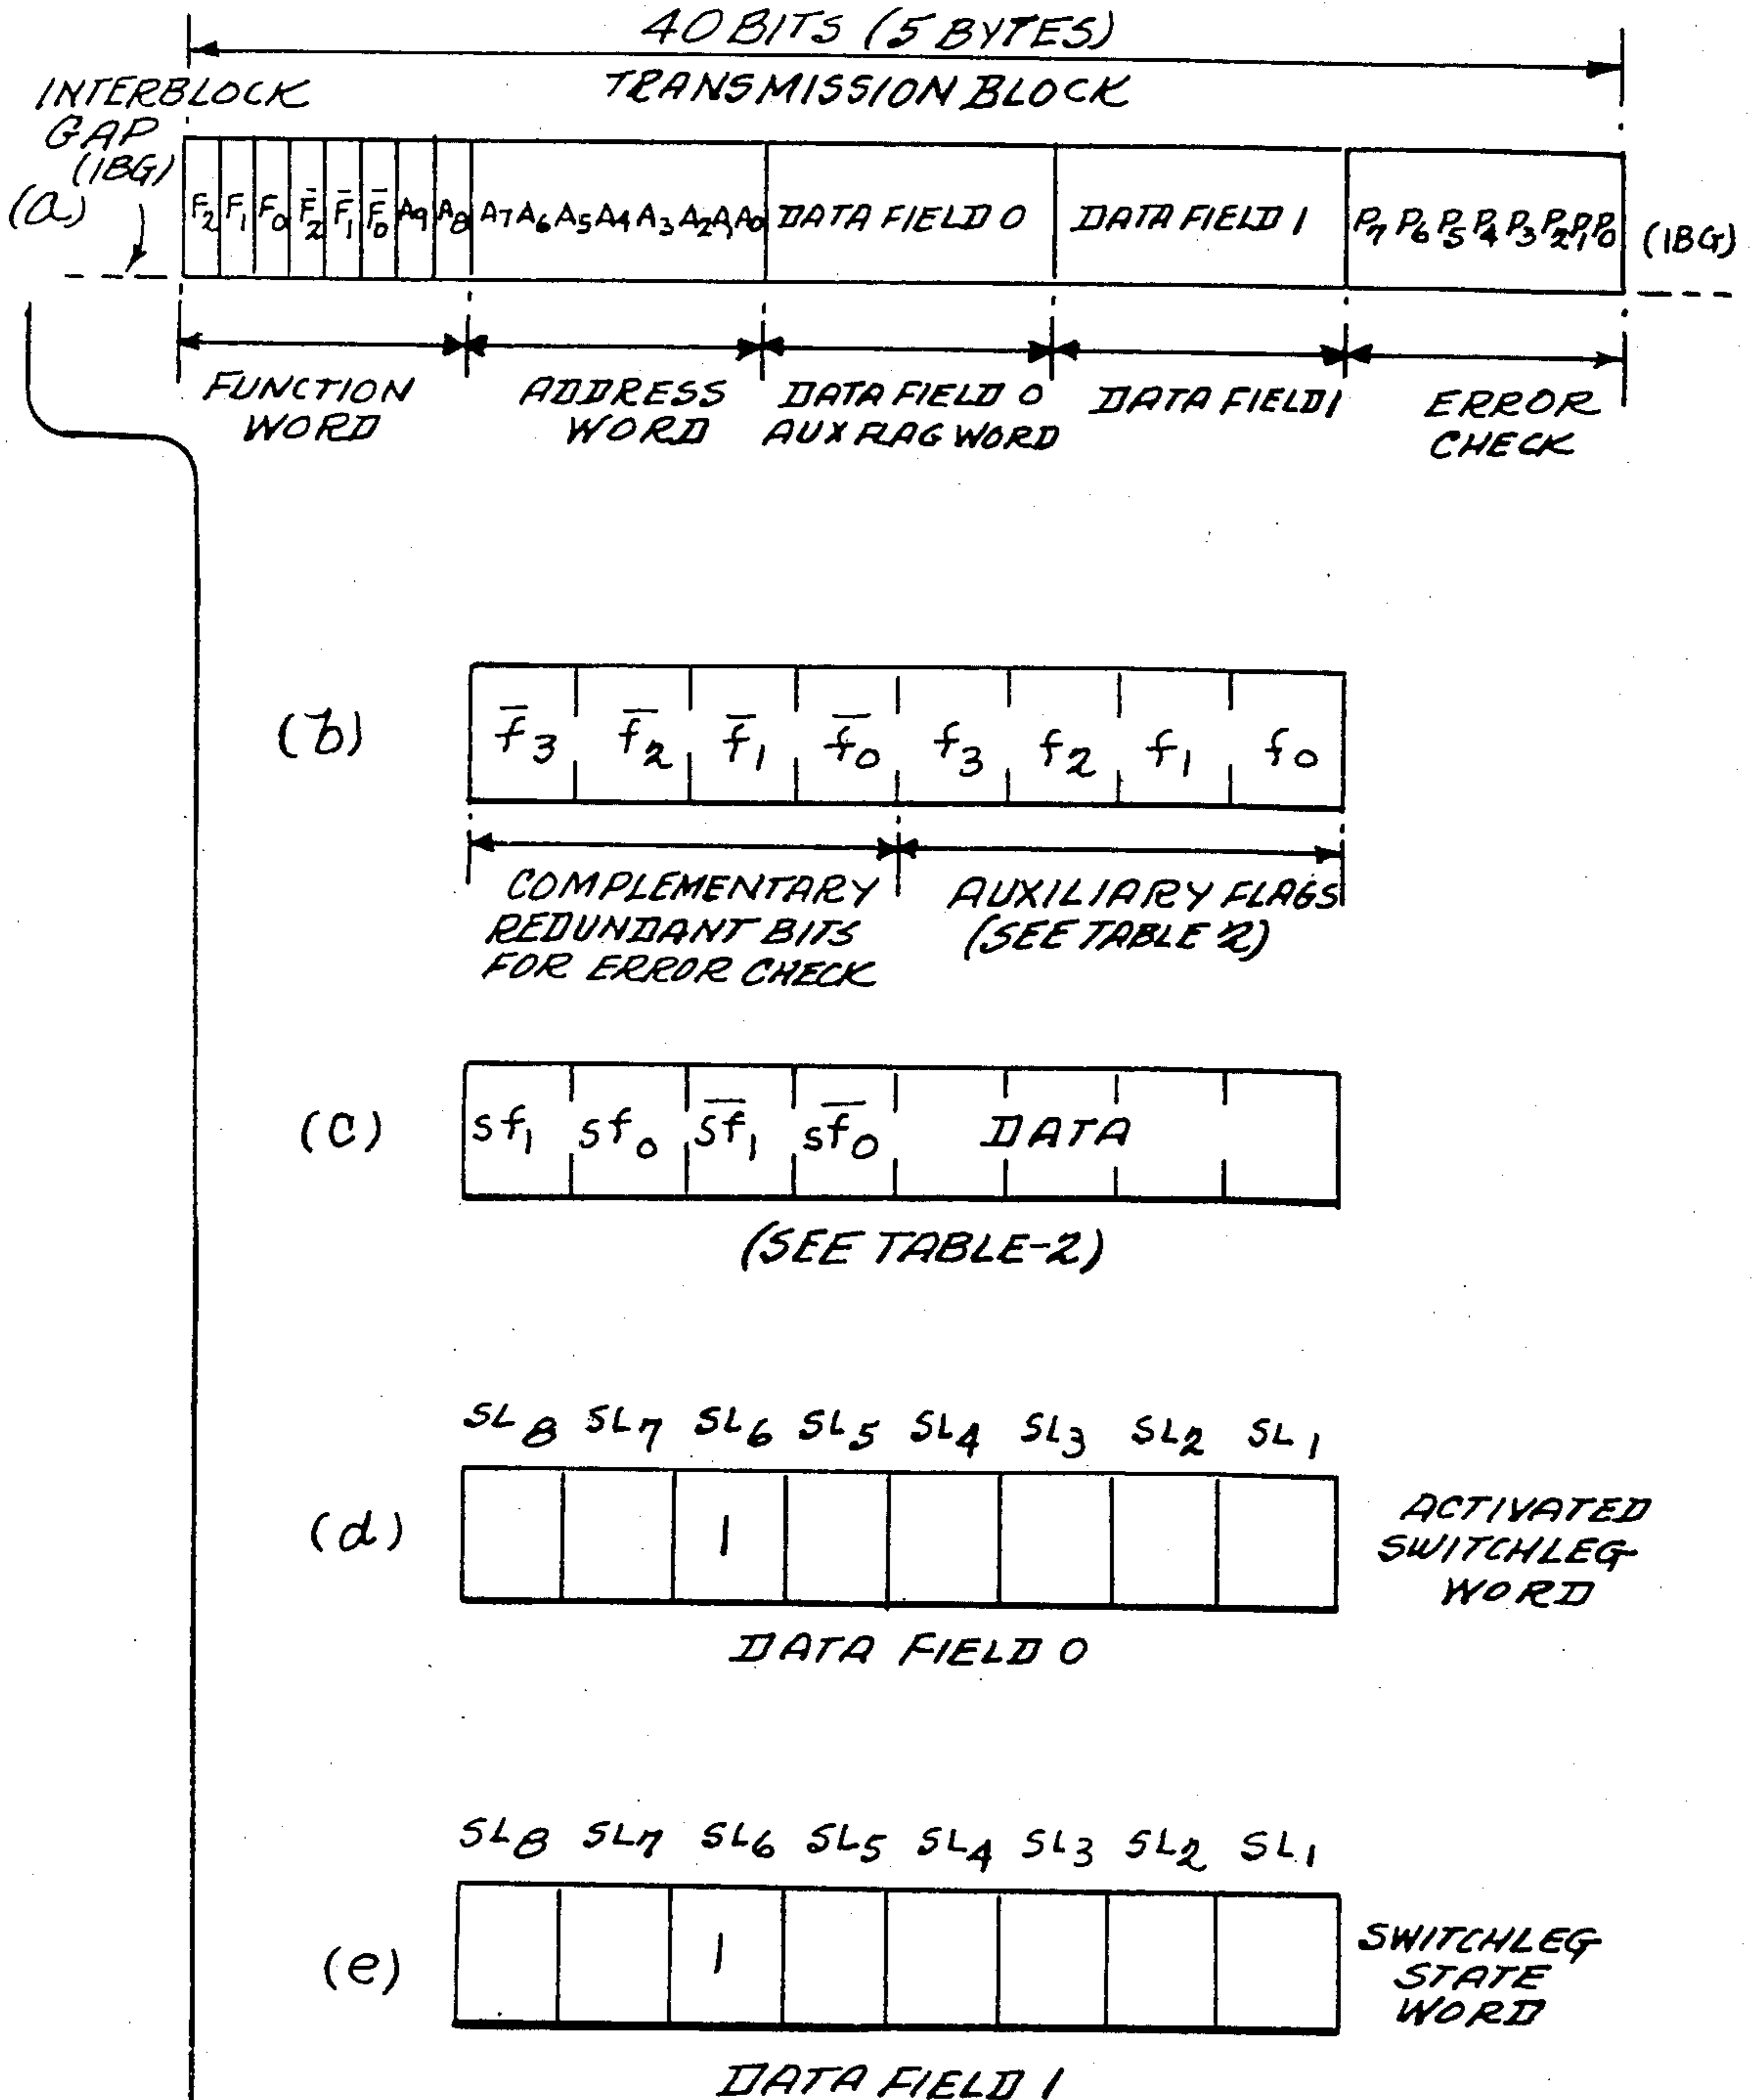 40 BITS (5 BYTES)
TRANSMISSION BLOCK
INTERBLOCK
GAP
(IBG)
(a)
F2 F1 F0 F̄2 F̄1 F̄0 A9 A8 A7 A6 A5 A4 A3 A2 A1 A0 DATA FIELD 0 DATA FIELD 1 P7 P6 P5 P4 P3 P2 P1 P0 (IBG)
FUNCTION
WORD
ADDRESS
WORD
DATA FIELD 0
AUX FLAG WORD
DATA FIELD 1
ERROR
CHECK
(b)
f̄3 f̄2 f̄1 f̄0 f3 f2 f1 f0
COMPLEMENTARY
REDUNDANT BITS
FOR ERROR CHECK
AUXILIARY FLAGS
(SEE TABLE 2)
(c)
sf1 sf0 s̄f̄1 s̄f̄0 DATA
(SEE TABLE-2)
SL8 SL7 SL6 SL5 SL4 SL3 SL2 SL1
(d)
1
ACTIVATED
SWITCHLEG
WORD
DATA FIELD 0
SL8 SL7 SL6 SL5 SL4 SL3 SL2 SL1
(e)
1
SWITCHLEG
STATE
WORD
DATA FIELD 1